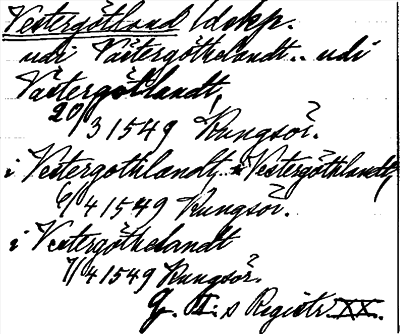 Vestergötland ldskp.
udi Västergöthelandt.. udi
Västergötlandt,
20/3 1549 Kungsör.
i Vestergothlandt, i Vestergöthlandt,
6/4 1549 Kungsör.
i Vestergöthelandt
7/4 1549 Kungsör.
G. I:s Registr XX.